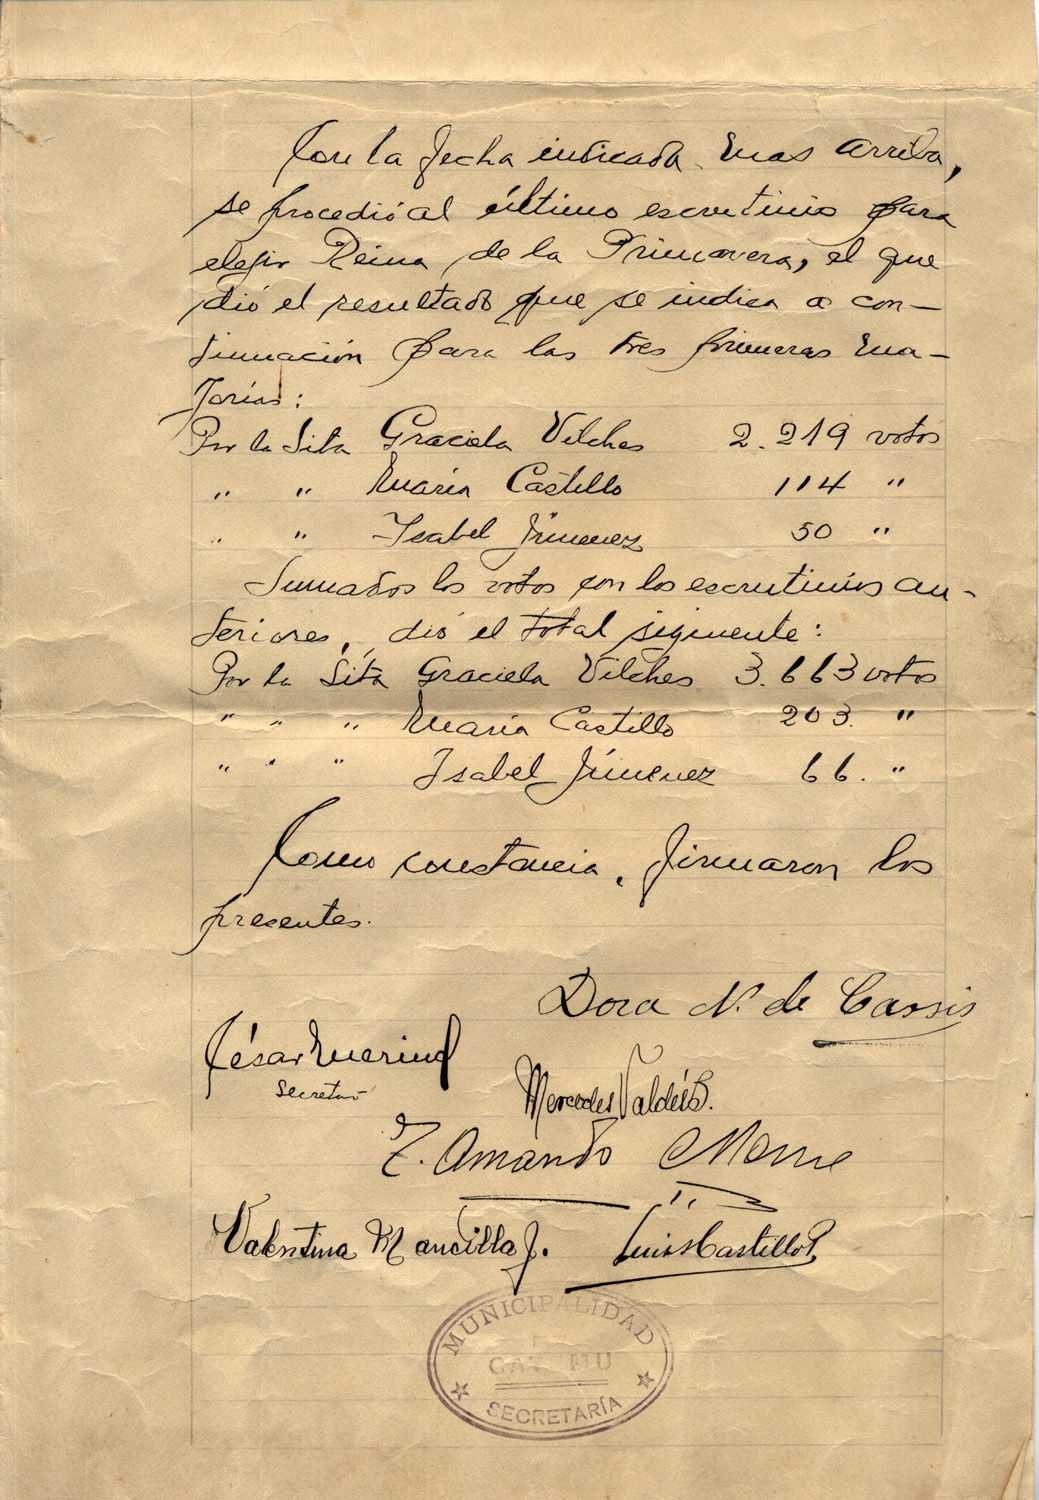 Con la fecha indicada mas arriba,
se procedió al último escrutinio para
elegir Reina de la Primavera, el que
dió el resultado que se indica a con-
tinuación para las tres primeras ma-
yorías:
Por la Sita Graciela Vilches 2.219 votos
" " María Castillo 114 "
" " Isabel Jimenez 50 "
Sumados los votos con los escrutinios an-
teriores, dió el total siguiente:
Por la Sita Graciela Vilches 3.663 votos
" " " María Castillo 203. "
" " " Isabel Jimenez 66. "
Como constancia, firmaron los
presentes.
Dora N. de Cassis
César Merino
Secretario
Mercedes Valdés
Amando
Valentina Mancilla J. Luis Castillo P.
MUNICIPALIDAD
CATEMU
SECRETARÍA